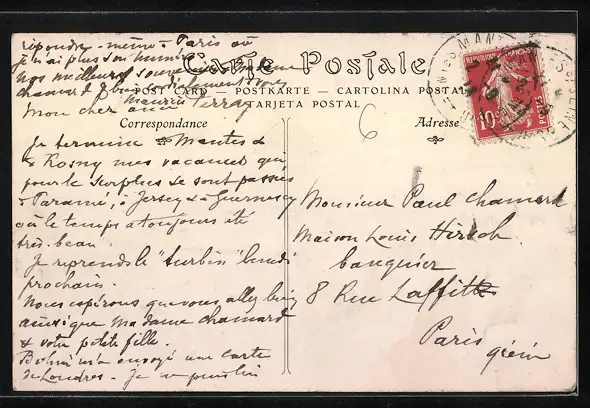 répondre même à Paris où
je n'ai plus son numéro
nos meilleurs souvenirs
Chamard
Maurice Perray
Carte Postale
POST CARD — POSTKARTE — CARTOLINA POSTALE
TARJETA POSTAL
Mon cher ami
Correspondance
Je termine à Mantes &
Rosny mes vacances qui
pour le surplus se sont passées
à Paramé, à Jersey & à Guernesey
où le temps a toujours été
très beau.
Je reprends le "turbin" lundi
prochain.
Nous espérons que vous allez bien
ainsi que Madame Chamard
& votre petite fille.
m'a envoyé une carte
de Londres. Je ne puis lui
6
Adresse
Monsieur Paul Chamard
Maison Louis Hirsch
banquier
8 Rue Laffitte
Paris
RÉPUBLIQUE FRANÇAISE
10c
POSTES
MANTES